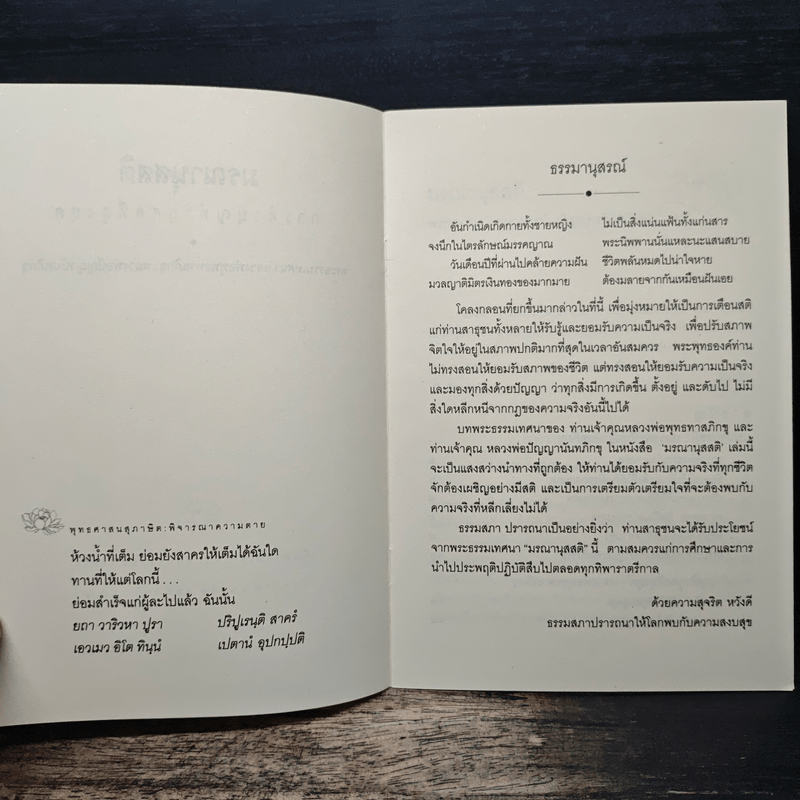 พุทธศาสนสุภาษิต:พิจารณาความตาย
ห้วงน้ำที่เต็ม ย่อมยังสาครให้เต็มได้ฉันใด
ทานที่ให้แต่โลกนี้ ...
ย่อมสำเร็จแก่ผู้ละไปแล้ว ฉันนั้น
ยถา วาริวหา ปูรา ปริปูเรนฺติ สาครํ
เอวเมว อิโต ทินฺนํ เปตานํ อุปกปฺปติ
ธรรมานุสรณ์
อันกำเนิดเกิดกายทั้งชายหญิง ไม่เป็นสิ่งแน่นแฟ้นทั้งแก่นสาร
จงนึกในไตรลักษณ์มรรคญาณ พระนิพพานนั่นแหละนะแสนสบาย
วันเดือนปีที่ผ่านไปคล้ายความฝัน ชีวิตพลันหมดไปน่าใจหาย
มวลญาติมิตรเงินทองของมากมาย ต้องมลายจากกันเหมือนฝันเอย
โคลงกลอนที่ยกขึ้นมากล่าวในที่นี้ เพื่อมุ่งหมายให้เป็นการเตือนสติ
แก่ท่านสาธุชนทั้งหลายให้รับรู้และยอมรับความเป็นจริง เพื่อปรับสภาพ
จิตใจให้อยู่ในสภาพปกติมากที่สุดในเวลาอันสมควร พระพุทธองค์ท่าน
ไม่ทรงสอนให้ยอมรับสภาพของชีวิต แต่ทรงสอนให้ยอมรับความเป็นจริง
และมองทุกสิ่งด้วยปัญญา ว่าทุกสิ่งมีการเกิดขึ้น ตั้งอยู่ และดับไป ไม่มี
สิ่งใดหลีกหนีจากกฎของความจริงอันนี้ไปได้
บทพระธรรมเทศนาของ ท่านเจ้าคุณหลวงพ่อพุทธทาสภิกขุ และ
ท่านเจ้าคุณ หลวงพ่อปัญญานันทภิกขุ ในหนังสือ 'มรณานุสสติ' เล่มนี้
จะเป็นแสงสว่างนำทางที่ถูกต้อง ให้ท่านได้ยอมรับกับความจริงที่ทุกชีวิต
จักต้องเผชิญอย่างมีสติ และเป็นการเตรียมตัวเตรียมใจที่จะต้องพบกับ
ความจริงที่หลีกเลี่ยงไม่ได้
ธรรมสภา ปรารถนาเป็นอย่างยิ่งว่า ท่านสาธุชนจะได้รับประโยชน์
จากพระธรรมเทศนา "มรณานุสสติ" นี้ ตามสมควรแก่การศึกษาและการ
นำไปประพฤติปฏิบัติสืบไปตลอดทุกทิพาราตรีกาล
ด้วยความสุจริต หวังดี
ธรรมสภาปรารถนาให้โลกพบกับความสงบสุข